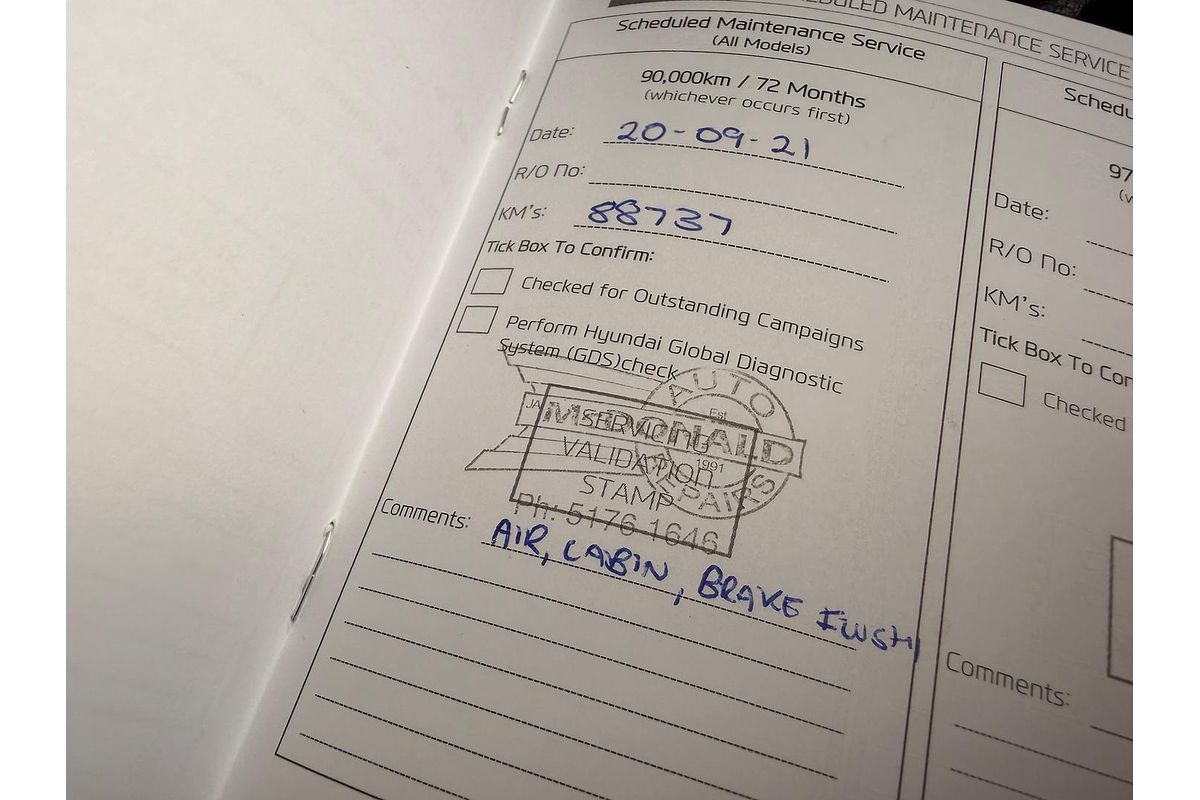 SCHEDULED MAINTENANCE SERVICE
Scheduled Maintenance Service
(All Models)
90,000km / 72 Months
(whichever occurs first)
Date: 20-09-21
R/O No:
KM's: 88737
Tick Box To Confirm:
Checked for Outstanding Campaigns
Perform Hyundai Global Diagnostic
System (GDS)check
AUTO
Est
McDONALD
SERVICING
VALIDATION
1991
STAMP
REPAIRS
Ph: 5176 1646
Comments: AIR, CABIN, BRAKE FLUSH
Schedu
97
Date:
R/O No:
KM's:
Tick Box To Con
Checked
Comments: